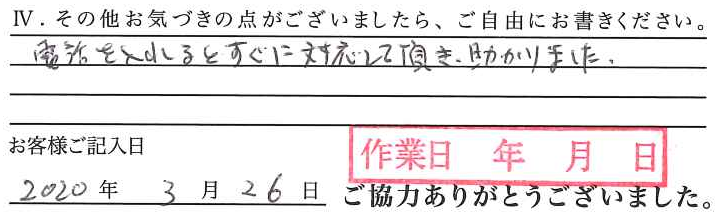 Ⅳ．その他お気づきの点がございましたら、ご自由にお書きください。
電話を入れるとすぐに対応して頂き、助かりました。
お客様ご記入日
作業日 年 月 日
2020 年 3 月 26 日 ご協力ありがとうございました。